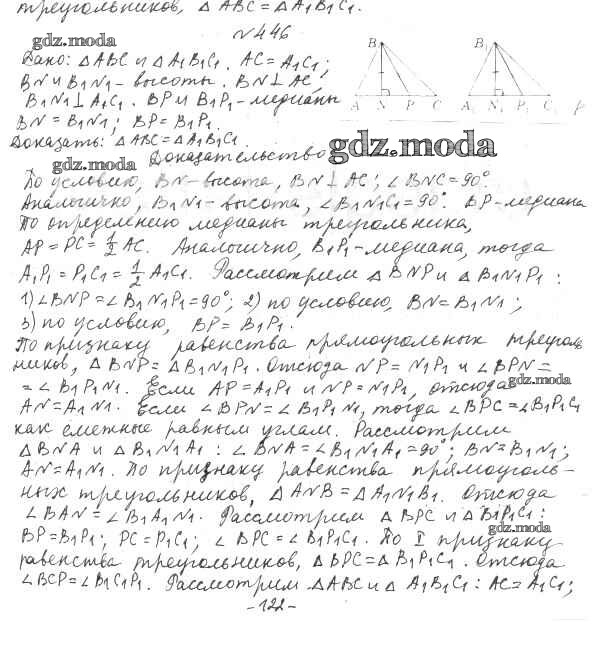 треугольников, △ ABC = △ A₁B₁C₁.
№446
gdz.moda
Дано: △ABC и △A₁B₁C₁. AC = A₁C₁;
BN и B₁N₁ - высоты. BN ⊥ AC
B₁N₁ ⊥ A₁C₁. BP и B₁P₁ - медианы
BN = B₁N₁; BP = B₁P₁.
B B₁
A N P C A₁ N₁ P₁ C₁
Доказать: △ABC = △A₁B₁C₁.
gdz.moda
gdz.moda
Доказательство
По условию, BN - высота, BN ⊥ AC; ∠BNC = 90°.
Аналогично, B₁N₁ - высота, ∠B₁N₁C₁ = 90°. BP - медиана
По определению медианы треугольника,
AP = PC = 1/2 AC. Аналогично, B₁P₁ - медиана, тогда
A₁P₁ = P₁C₁ = 1/2 A₁C₁. Рассмотрим △BNP и △B₁N₁P₁ :
1) ∠BNP = ∠B₁N₁P₁ = 90°; 2) по условию, BN = B₁N₁ ;
3) по условию, BP = B₁P₁.
По признаку равенства прямоугольных треуголь
ников, △ BNP = △B₁N₁P₁. Отсюда NP = N₁P₁ и ∠BPN =
= ∠B₁P₁N₁. Если AP = A₁P₁ и NP = N₁P₁, отсюда
gdz.moda
AN = A₁N₁. Если ∠BPN = ∠B₁P₁N₁, тогда ∠BPC = ∠B₁P₁C₁
как смежные равным углам. Рассмотрим
△BNA и △B₁N₁A₁ : ∠BNA = ∠B₁N₁A₁ = 90°; BN = B₁N₁;
AN = A₁N₁. По признаку равенства прямоуголь-
ных треугольников, △ANB = △A₁N₁B₁. Отсюда
∠BAN = ∠B₁A₁N₁. Рассмотрим △BPC и △B₁P₁C₁:
gdz.moda
BP = B₁P₁; PC = P₁C₁; ∠BPC = ∠B₁P₁C₁. По I признаку
равенства треугольников, △BPC = △B₁P₁C₁. Отсюда
∠BCP = ∠B₁C₁P₁. Рассмотрим △ABC и △A₁B₁C₁: AC = A₁C₁;
-122-